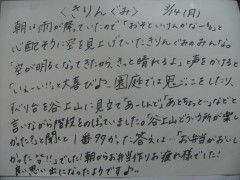 〈きりんぐみ〉 3/14(月)
朝は雨が降っていたので「おそといけるかな〜?」と
心配そうに空を見上げていたきりんぐみのみんな。
「空が明るくなってきたから、きっと晴れるよ」と声をかけると
「いえーい!!」と大喜び♪。園庭では鬼ごっこをしたり、
すべり台を谷上山に見立て「あーしんど」「あとちょっと〜」などと
言いながら階段をのぼっていました。「谷上山どういう所が楽し
かった?」と聞くと1番多かった答えは…「お弁当がおいし
かった〜!!」でした!朝からお弁当作りお疲れ様でした!
良い思い出になったようですよ♪